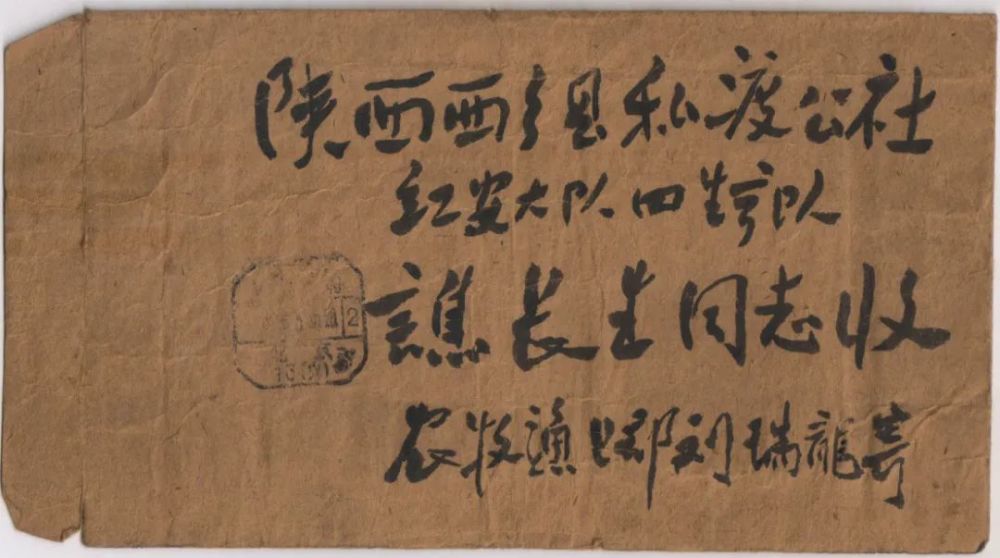 陕西西乡县私渡公社
红安大队四生产队
譙长生同志收
农牧漁业部刘瑞龍寄